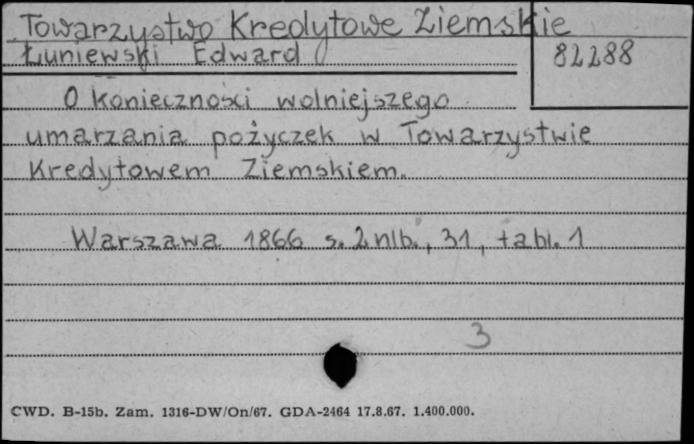 Towarzystwo Kredytowe Ziemskie
Łuniewski Edward
82288
O konieczności wolniejszego
umarzania pożyczek w Towarzystwie
Kredytowem Ziemskiem.
Warszawa 1866 s. 2 nlb., 31, tabl. 1
3
CWD. B-15b. Zam. 1316-DW/On/67. GDA-2464 17.8.67. 1.400.000.